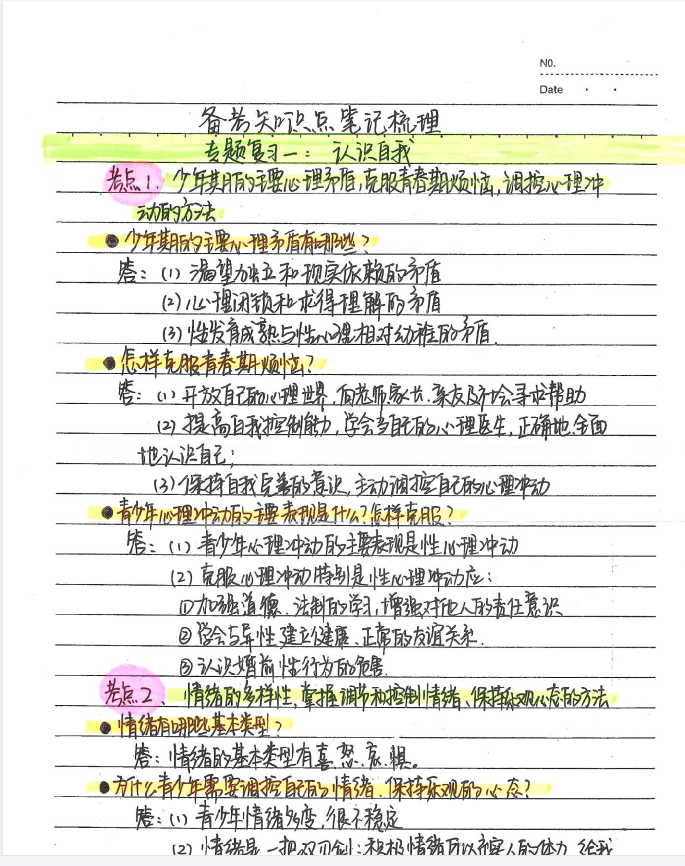 NO.
Date
备考知识点笔记梳理
专题复习一：认识自我
考点1、少年期的主要心理矛盾,克服青春期烦恼,调控心理冲
动的方法
●少年期的主要心理矛盾有哪些?
答：(1) 渴望独立和现实依赖的矛盾
(2) 心理闭锁和求得理解的矛盾
(3) 性发育成熟与性心理相对幼稚的矛盾.
●怎样克服青春期烦恼?
答：(1) 开放自己的心理世界,向老师家长、亲友及社会寻求帮助
(2) 提高自我控制能力,学会当自己的心理医生,正确地全面
地认识自己;
(3) 保持自我完善的意识,主动调控自己的心理冲动
●青少年心理冲动的主要表现是什么?怎样克服?
答：(1) 青少年心理冲动的主要表现是性心理冲动
(2) 克服心理冲动特别是性心理冲动应：
①加强道德、法制的学习,增强对他人的责任意识
②学会与异性建立健康、正常的友谊关系.
③认识婚前性行为的危害.
考点2、情绪的多样性,掌握调节和控制情绪、保持乐观心态的方法
●情绪有哪些基本类型?
答：情绪的基本类型有喜、怒、哀、惧。
●为什么青少年需要调控自己的情绪、保持乐观的心态?
答：(1) 青少年情绪多变,很不稳定
(2) 情绪是一把双刃剑：积极情绪可以充实人的体力 给我